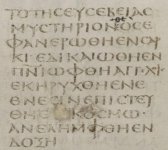 ΤΟΤΗϹΕΥϹΕΒΕΙΑϹ
ΜΥϹΤΗΡΙΟΝΟϹΕ
ΦΑΝΕΡΩΘΗΕΝϹΑΡ
ΚΙΕΔΙΚΑΙΩΘΗΕΝ
ΠΝΙΩΦΘΗ
ΕΚΗΡΥΧΘΗΕΝΕ
ΘΝΕϹΙΝΕΠΙϹΤΕΥ
ΘΗΕΝΚΟϹΜΩ
ΑΝΕΛΗΜΦΘΗΕΝ
ΔΟΞΗ